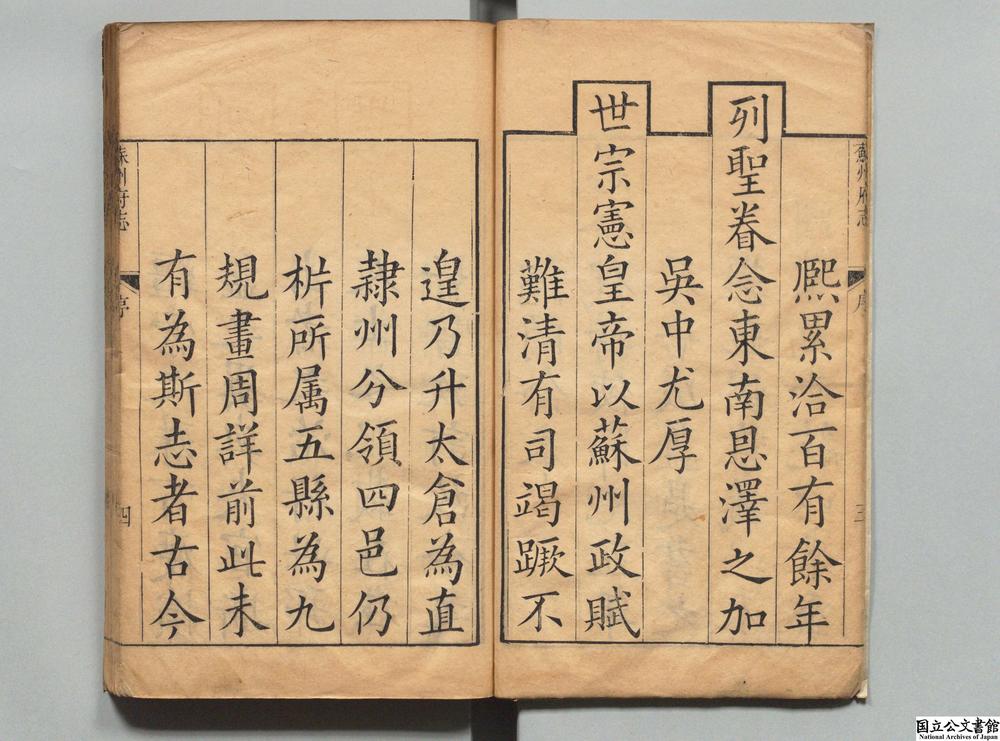 蘇州府志
序
三
熈累洽百有餘年
列聖眷念東南恩澤之加
吳中尤厚
世宗憲皇帝以蘇州政賦
難清有司竭蹶不
遑乃升太倉為直
隷州分領四邑仍
析所属五縣為九
規畫周詳前此未
有為斯志者古今
蘇州府志
序
四
国立公文書館
National Archives of Japan